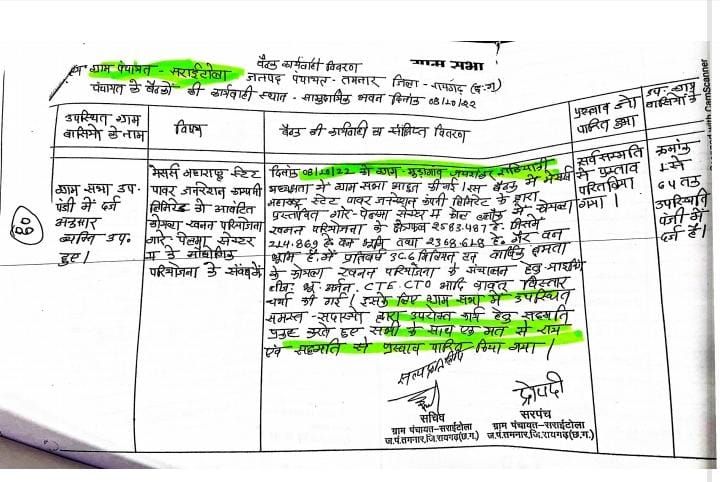 ग्राम पंचायत - सराईटोला बैठक कार्यवाही विवरण ग्राम सभा
जनपद पंचायत - तमनार जिला - रायगढ़ (छ.ग.)
पंचायत के बैठकों की कार्यवाही स्थान - सामुदायिक भवन दिनांक 08/10/22
उपस्थित ग्राम वासियों के नाम
विषय
बैठक की कार्यवाही का संक्षिप्त विवरण
प्रस्ताव जो पारित हुआ
उप. ग्राम वासियों के
ग्राम सभा उप.
पंजी में दर्ज
अनुसार
व्यक्ति उप.
हुए।
मेसर्स महाराष्ट्र स्टेट
पावर जनरेशन कम्पनी
लिमिटेड को आवंटित
कोयला खनन परियोजना
गारे पेलमा सेक्टर
परियोजना के संबंध में
दिनांक 08/10/22 को ग्राम - मुड़ागांव
अध्यक्षता में ग्राम सभा आहूत की गई। इस बैठक में मेसर्स
महाराष्ट्र स्टेट पावर जनरेशन कंपनी लिमिटेड के द्वारा
प्रस्तावित गारे - पेलमा सेक्टर II कोल ब्लॉक में कोयला
खनन परियोजना के क्षेत्रफल 2583.487 हे. जिसमें
214.869 हे. वन भूमि तथा 2368.618 हे. गैर वन
भूमि है।
के कोयला खनन परियोजना के संचालन हेतु
CTE. CTO आदि बाबत् विस्तार
चर्चा की गई। इसके लिए ग्राम सभा में उपस्थित
समस्त - सदस्यों द्वारा उपरोक्त कार्य हेतु सहमति
प्रकट करते हुए सभी के साथ एक मत से राय
एवं सहमति से प्रस्ताव पारित किया गया।
सर्वसम्मति
से प्रस्ताव
पारित किया
गया।
क्रमांक
1 से
64 तक
उपस्थिति
पंजी में
दर्ज है।
सत्यप्रतिलिपि
द्रोपदी
सचिव
ग्राम पंचायत-सराईटोला
ज.पं.तमनार,जि.रायगढ़(छ.ग.)
सरपंच
ग्राम पंचायत-सराईटोला
ज.पं.तमनार,जि.रायगढ़(छ.ग.)
with CamScanner